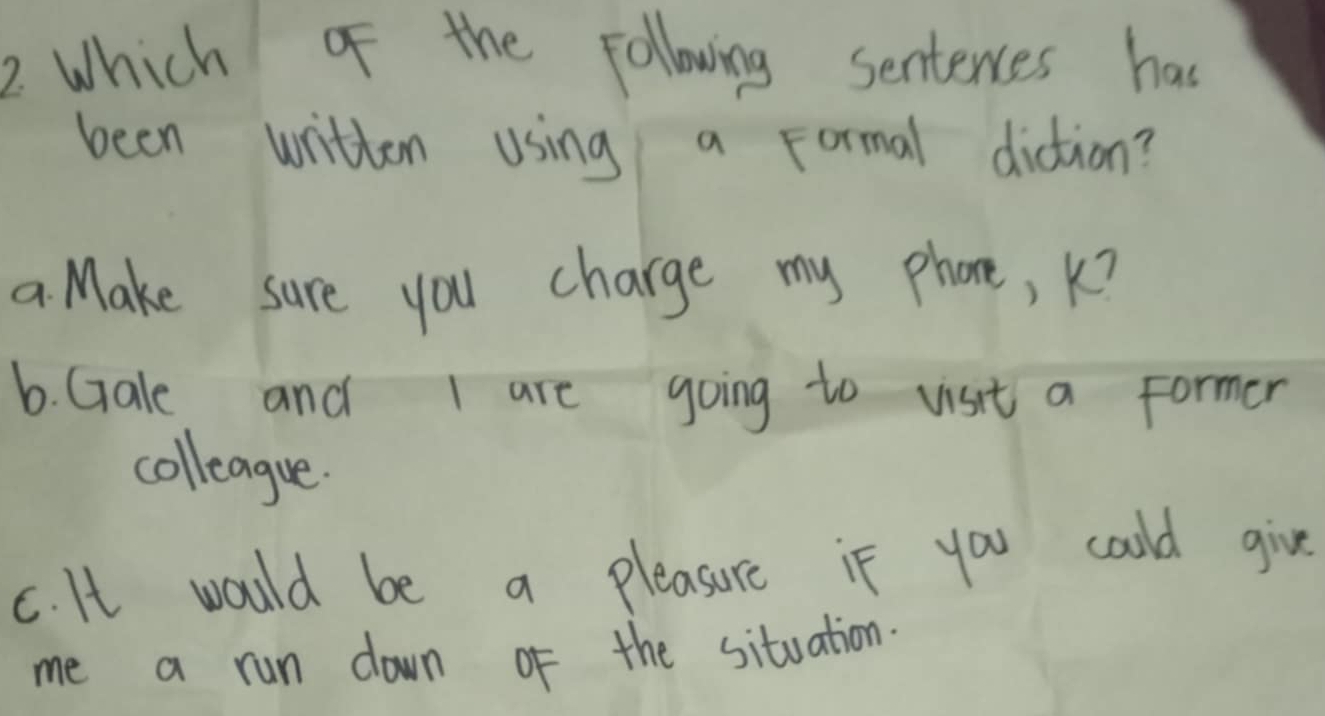 2. Which of the Following sentences has
been written using a Formal diction?
a. Make sure you charge my phone, K?
b. Gale and I are going to visit a Former
colleague.
c. It would be a pleasure if you could give
me a run down of the situation.